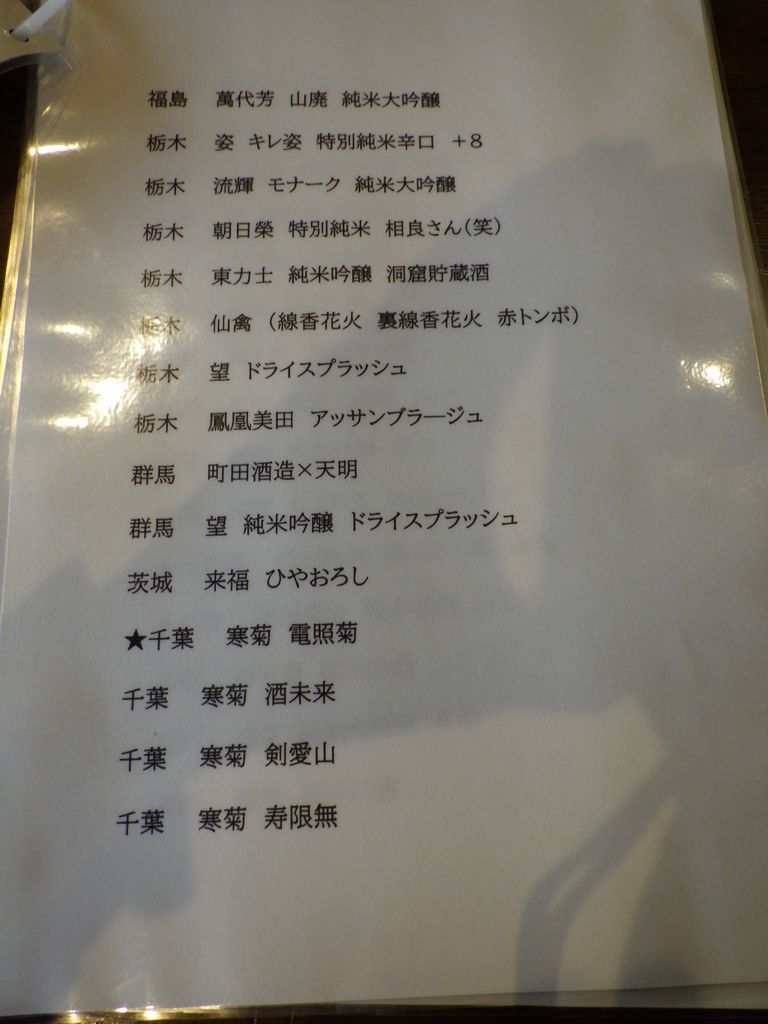 福島 萬代芳 山廃 純米大吟醸
栃木 姿 キレ姿 特別純米辛口 +8
栃木 流輝 モナーク 純米大吟醸
栃木 朝日榮 特別純米 相良さん(笑)
栃木 東力士 純米吟醸 洞窟貯蔵酒
栃木 仙禽 (線香花火 裏線香花火 赤トンボ)
栃木 望 ドライスプラッシュ
栃木 鳳凰美田 アッサンブラージュ
群馬 町田酒造×天明
群馬 望 純米吟醸 ドライスプラッシュ
茨城 来福 ひやおろし
★千葉 寒菊 電照菊
千葉 寒菊 酒未来
千葉 寒菊 剣愛山
千葉 寒菊 寿限無